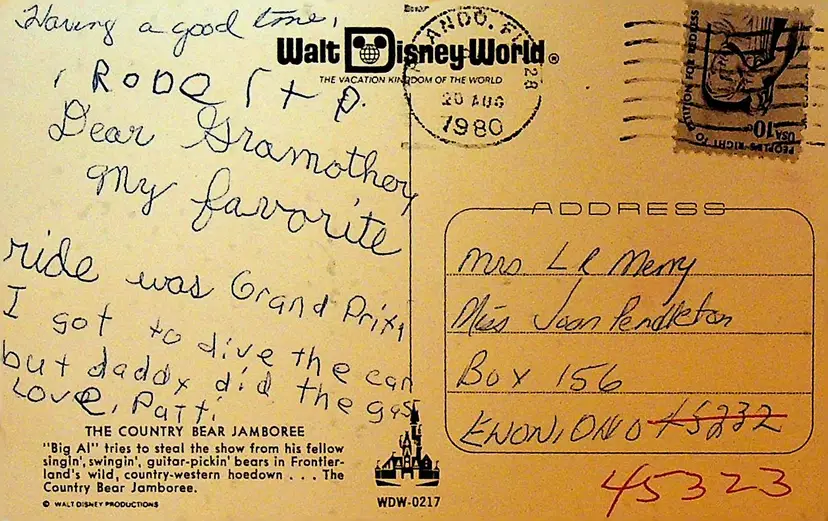 Having a good time,
Walt Disney World®
THE VACATION KINGDOM OF THE WORLD
Dear Gramother
My favorite
ride was Grand Prix,
I got to dive the car
but daddy did the gas
Love, Patti
THE COUNTRY BEAR JAMBOREE
"Big Al" tries to steal the show from his fellow
singin', swingin', guitar-pickin' bears in Frontier-
land's wild, country-western hoedown . . . The
Country Bear Jamboree.
© WALT DISNEY PRODUCTIONS
WDW-0217
ANDO, FL
328
20 AUG
1980
PEOPLE'S RIGHT TO PETITION FOR REDRESS
USA
10c
ADDRESS
Mrs L R Merry
Miss Joan Pendleton
Box 156
ENON, OHIO 45232
45323